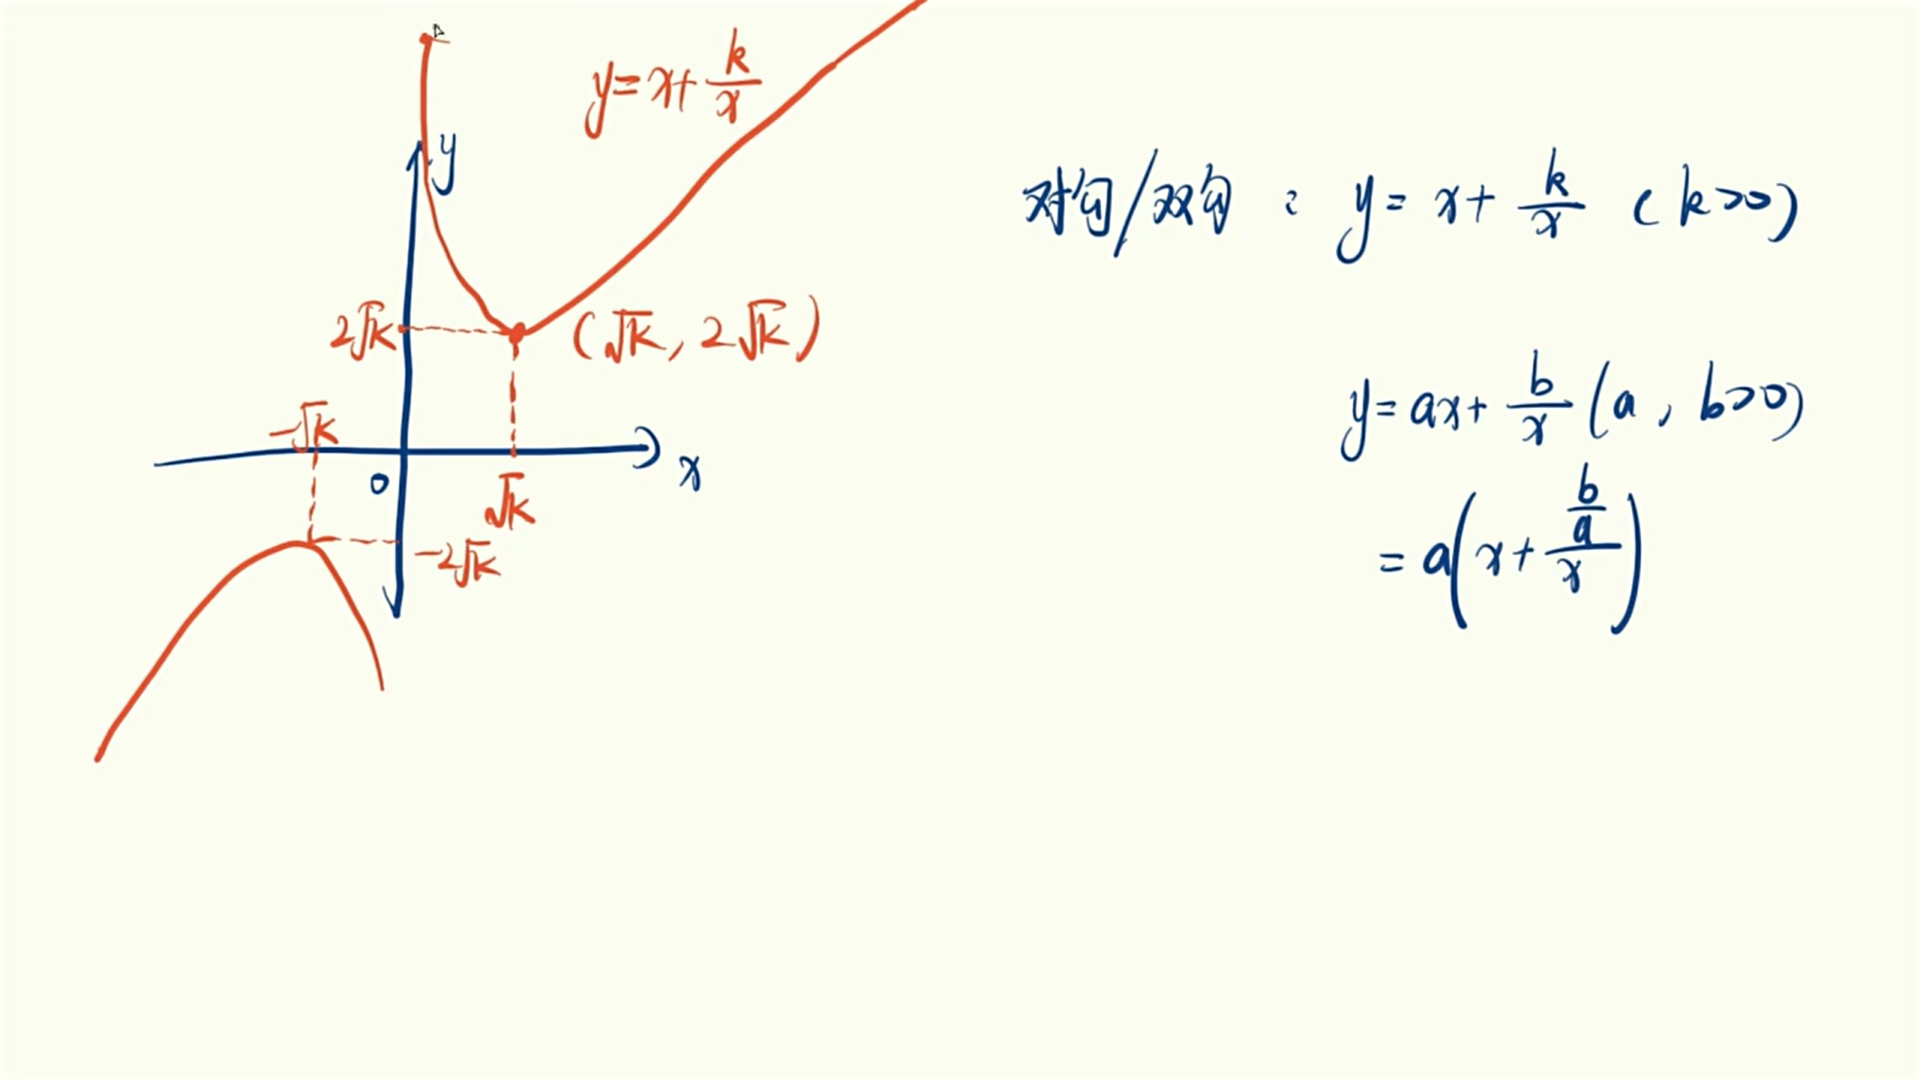 y=x+k/x
y
2√k
(√k, 2√k)
-√k
x
0
√k
-2√k
对勾/双勾: y=x+k/x (k>0)
y=ax+b/x (a, b>0)
=a(x+(b/a)/x)